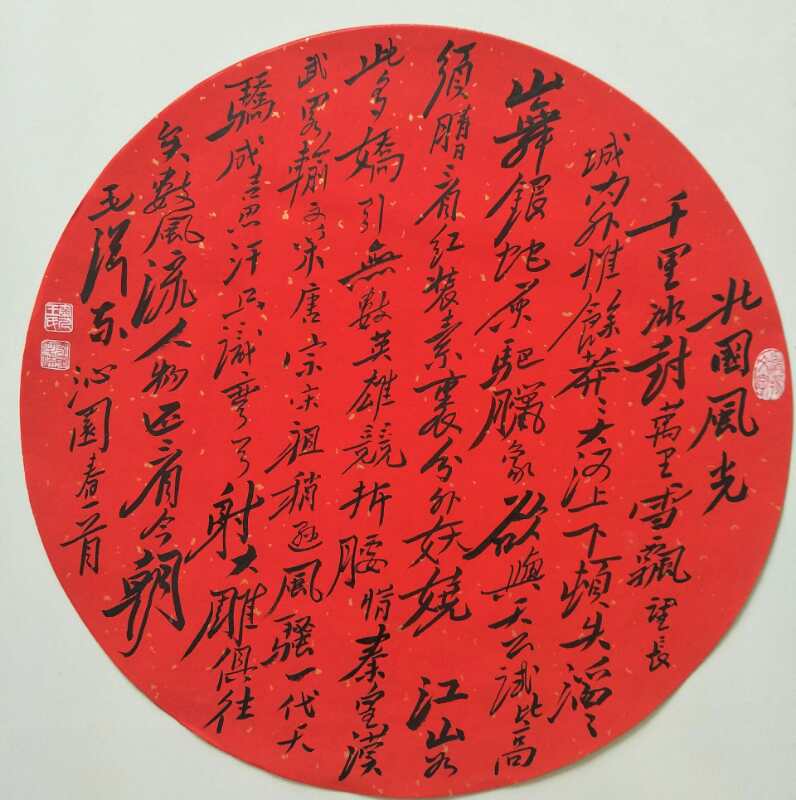 北國風光
千里冰封萬里雪飄望長
城内外惟餘莽〻大河上下頓失滔〻
山舞銀蛇原馳臘象欲與天公試比高
須晴日看紅裝素裹分外妖嬈江山如
此多嬌引無數英雄競折腰惜秦皇漢
武略輸文采唐宗宋祖稍遜風騷一代天
驕成吉思汗只識彎弓射大雕俱往
矣數風流人物還看今朝
毛澤東沁園春一首